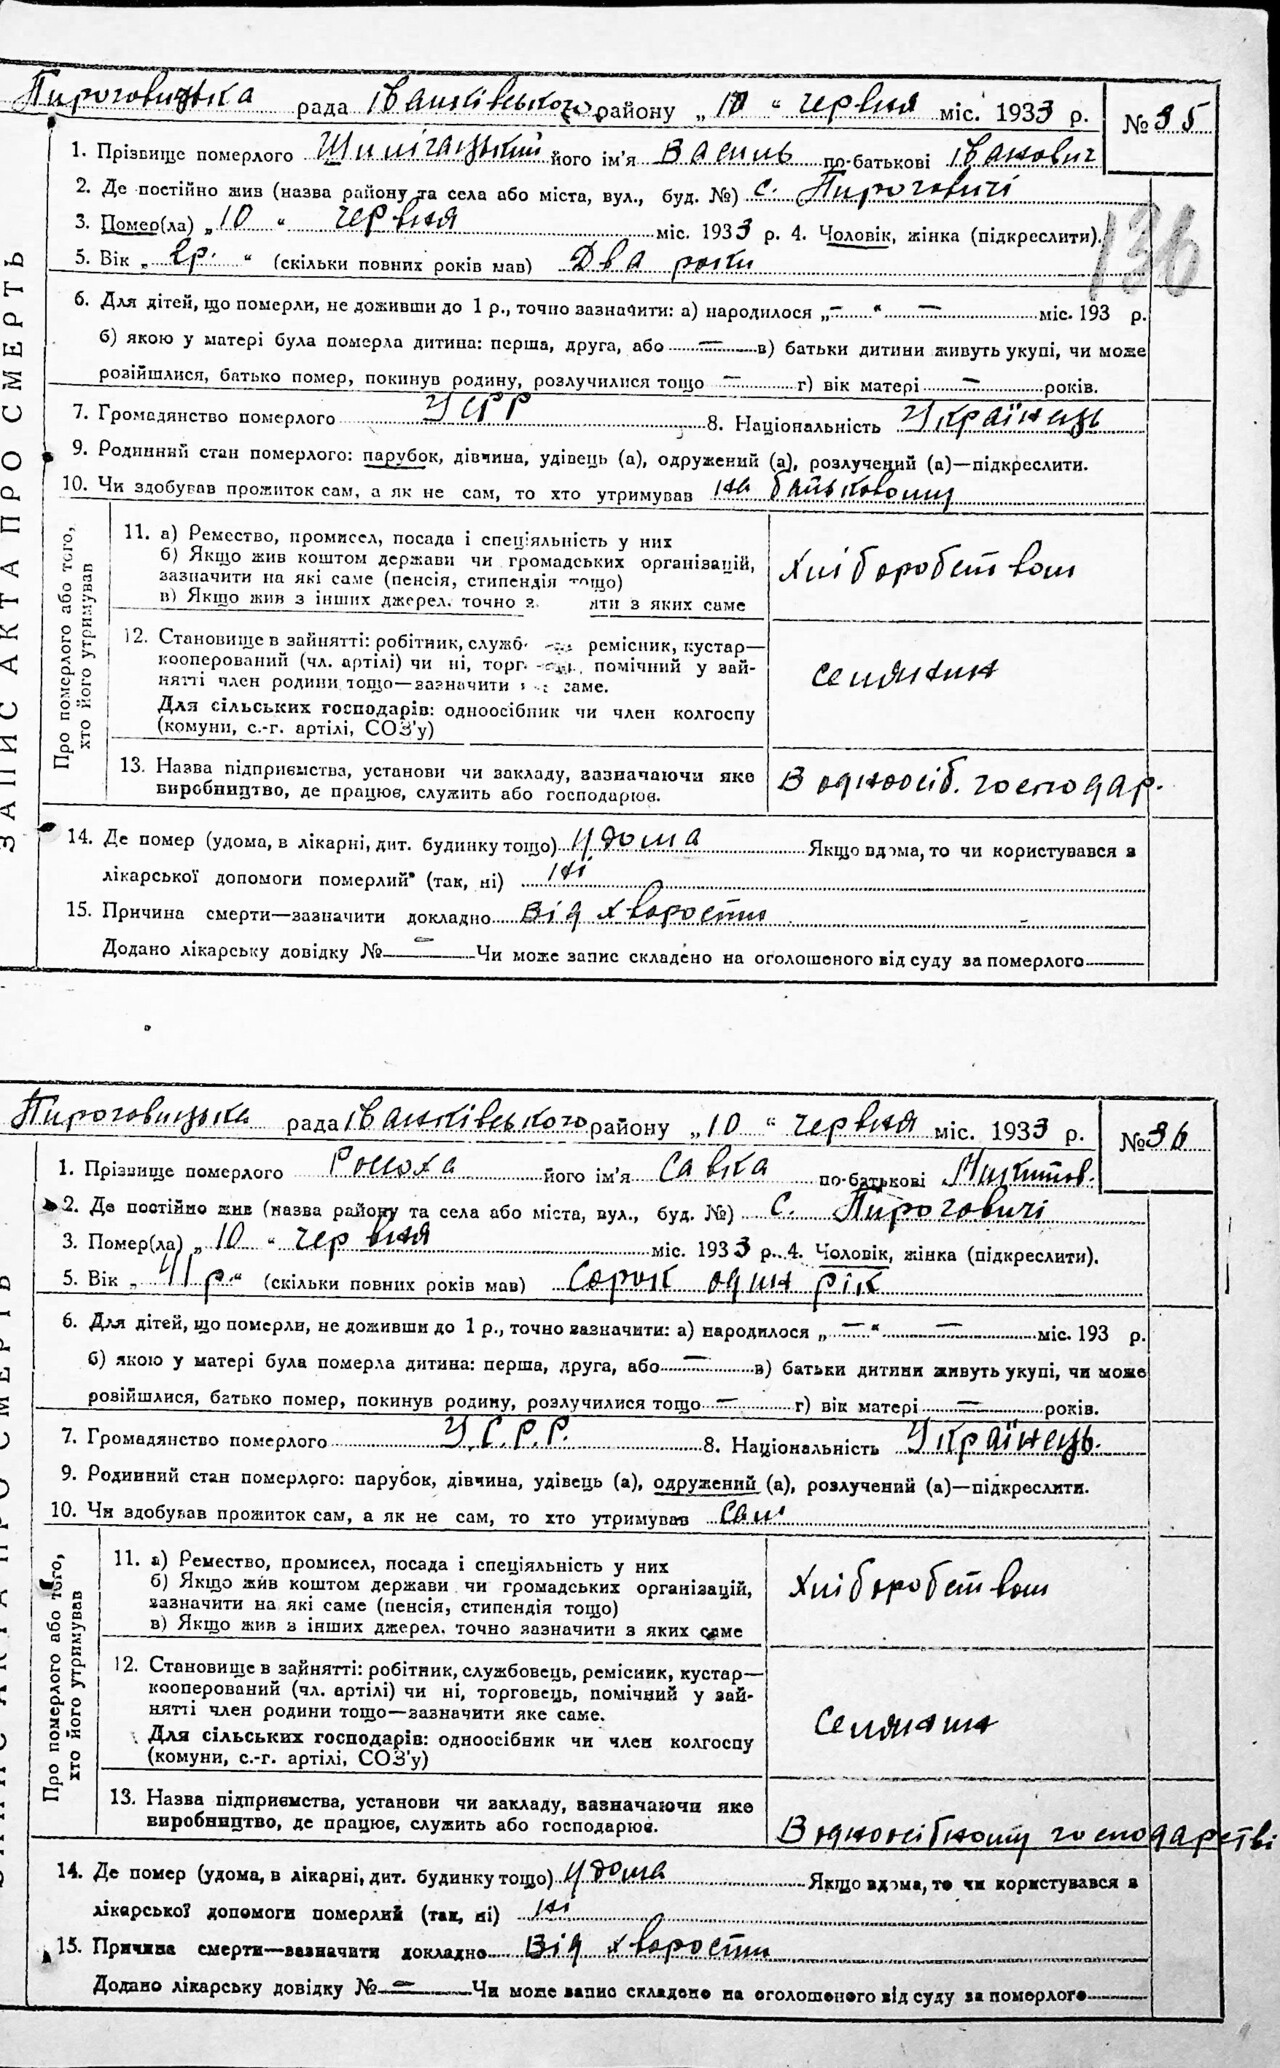 Пироговицька рада Іванківського району „10“ червня міс. 1933 р. № 35
1. Прізвище померлого його ім'я Василь по-батькові Іванович
2. Де постійно жив (назва району та села або міста, вул., буд. №) с. Пироговичі
3. Помер(ла) „10“ червня міс. 1933 р. 4. Чоловік, жінка (підкреслити).
136
5. Вік „2р.“ (скільки повних років мав) Два роки
6. Для дітей, що померли, не доживши до 1 р., точно зазначити: а) народилося „—“ — міс. 193 р.
б) якою у матері була померла дитина: перша, друга, або — в) батьки дитини живуть укупі, чи може
розійшлися, батько помер, покинув родину, розлучилися тощо — г) вік матері — років.
7. Громадянство померлого УСРР 8. Національність Українець
9. Родинний стан померлого: парубок, дівчина, удівець (а), одружений (а), розлучений (а)—підкреслити.
10. Чи здобував прожиток сам, а як не сам, то хто утримував на батьковому
ЗАПИС АКТА ПРО СМЕРТЬ
Про померлого або того, хто його утримував
11. а) Ремество, промисел, посада і спеціяльність у них
б) Якщо жив коштом держави чи громадських організацій,
зазначити на які саме (пенсія, стипендія тощо)
в) Якщо жив з інших джерел, точно з яких саме
Хліборобством
12. Становище в зайнятті: робітник, служб ремісник, кустар—
кооперований (чл. артілі) чи ні, торг помічний у зай-
нятті член родини тощо—зазначити саме.
Для сільських господарів: одноосібник чи член колгоспу
(комуни, с.-г. артілі, СОЗ'у)
селянин
13. Назва підприємства, установи чи закладу, зазначаючи яке
виробництво, де працює, служить або господарює.
В одноосіб. господар.
14. Де помер (удома, в лікарні, дит. будинку тощо) удома Якщо вдома, то чи користувався з
лікарської допомоги померлий (так, ні) ні
15. Причина смерти—зазначити докладно від хворости
Додано лікарську довідку № — Чи може запис складено на оголошеного від суду за померлого
Пироговицька рада Іванківського району „10“ червня міс. 1933 р. № 36
1. Прізвище померлого його ім'я Савка по-батькові Микитов.
2. Де постійно жив (назва району та села або міста, вул., буд. №) с. Пироговичі
3. Помер(ла) „10“ червня міс. 1933 р. 4. Чоловік, жінка (підкреслити).
5. Вік „41р.“ (скільки повних років мав) Сорок один рік
6. Для дітей, що померли, не доживши до 1 р., точно зазначити: а) народилося „—“ — міс. 193 р.
б) якою у матері була померла дитина: перша, друга, або — в) батьки дитини живуть укупі, чи може
розійшлися, батько помер, покинув родину, розлучилися тощо — г) вік матері — років.
7. Громадянство померлого У.С.Р.Р. 8. Національність Українець.
9. Родинний стан померлого: парубок, дівчина, удівець (а), одружений (а), розлучений (а)—підкреслити.
10. Чи здобував прожиток сам, а як не сам, то хто утримував Сам
Про померлого або того, хто його утримував
11. а) Ремество, промисел, посада і спеціяльність у них
б) Якщо жив коштом держави чи громадських організацій,
зазначити на які саме (пенсія, стипендія тощо)
в) Якщо жив з інших джерел, точно зазначити з яких саме
Хліборобством
12. Становище в зайнятті: робітник, службовець, ремісник, кустар—
кооперований (чл. артілі) чи ні, торговець, помічний у зай-
нятті член родини тощо—зазначити яке саме.
Для сільських господарів: одноосібник чи член колгоспу
(комуни, с.-г. артілі, СОЗ'у)
Селянин
13. Назва підприємства, установи чи закладу, зазначаючи яке
виробництво, де працює, служить або господарює.
В одноосібному господарстві
14. Де помер (удома, в лікарні, дит. будинку тощо) удома Якщо вдома, то чи користувався з
лікарської допомоги померлий (так, ні) ні
15. Причина смерти—зазначити докладно Від хворости
Додано лікарську довідку № — Чи може запис складено на оголошеного від суду за померлого